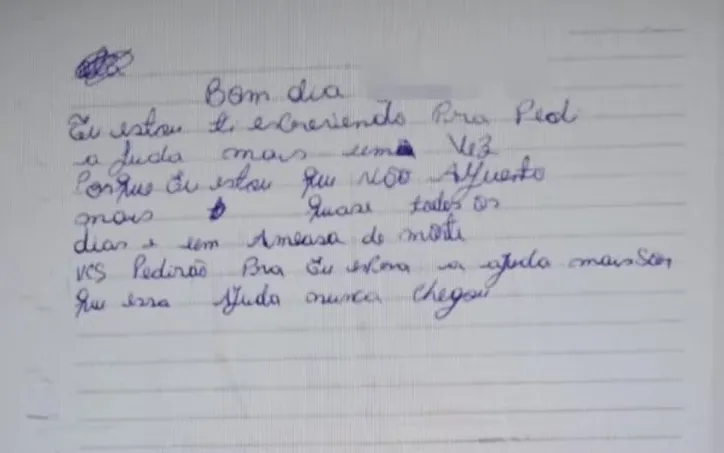 Bom dia
Eu estou ti escrevendo Pra Ped
a Juda mais uma Vez
Porque Eu estou que não Aguento
mais quase todos os
dias e um Ameasa de morte
vcs Pedirão Pra Eu a ajuda mais
que essa Ajuda nunca chegou